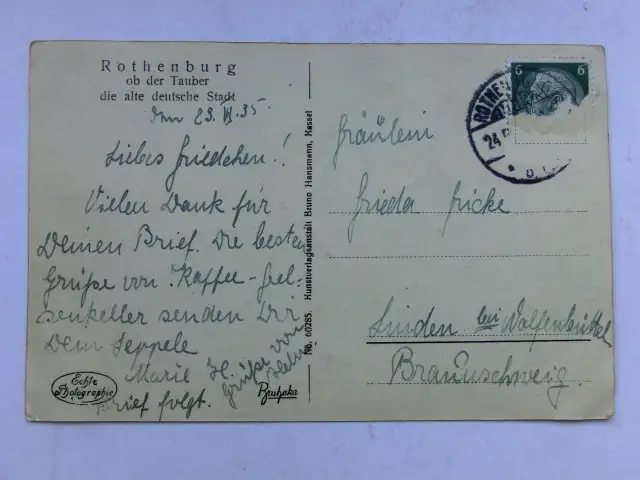 Rothenburg
ob der Tauber
die alte deutsche Stadt
den 23. VI. 35.
Liebes Friedchen!
Vielen Dank für
Deinen Brief. Die besten
Grüße von Kaffee-Fel-
senkeller senden Dir
Dein Seppele
Marie H.
Brief folgt.
Grüße von
Echte
Photographie
Bruhaka
No. 60285. Kunstverlagsanstalt Bruno Hansmann, Kassel
6 6
ROTHEN
24.
o. T.
Fräulein
Frieda Fricke
Linden bei Wolfenbüttel
Braunschweig.